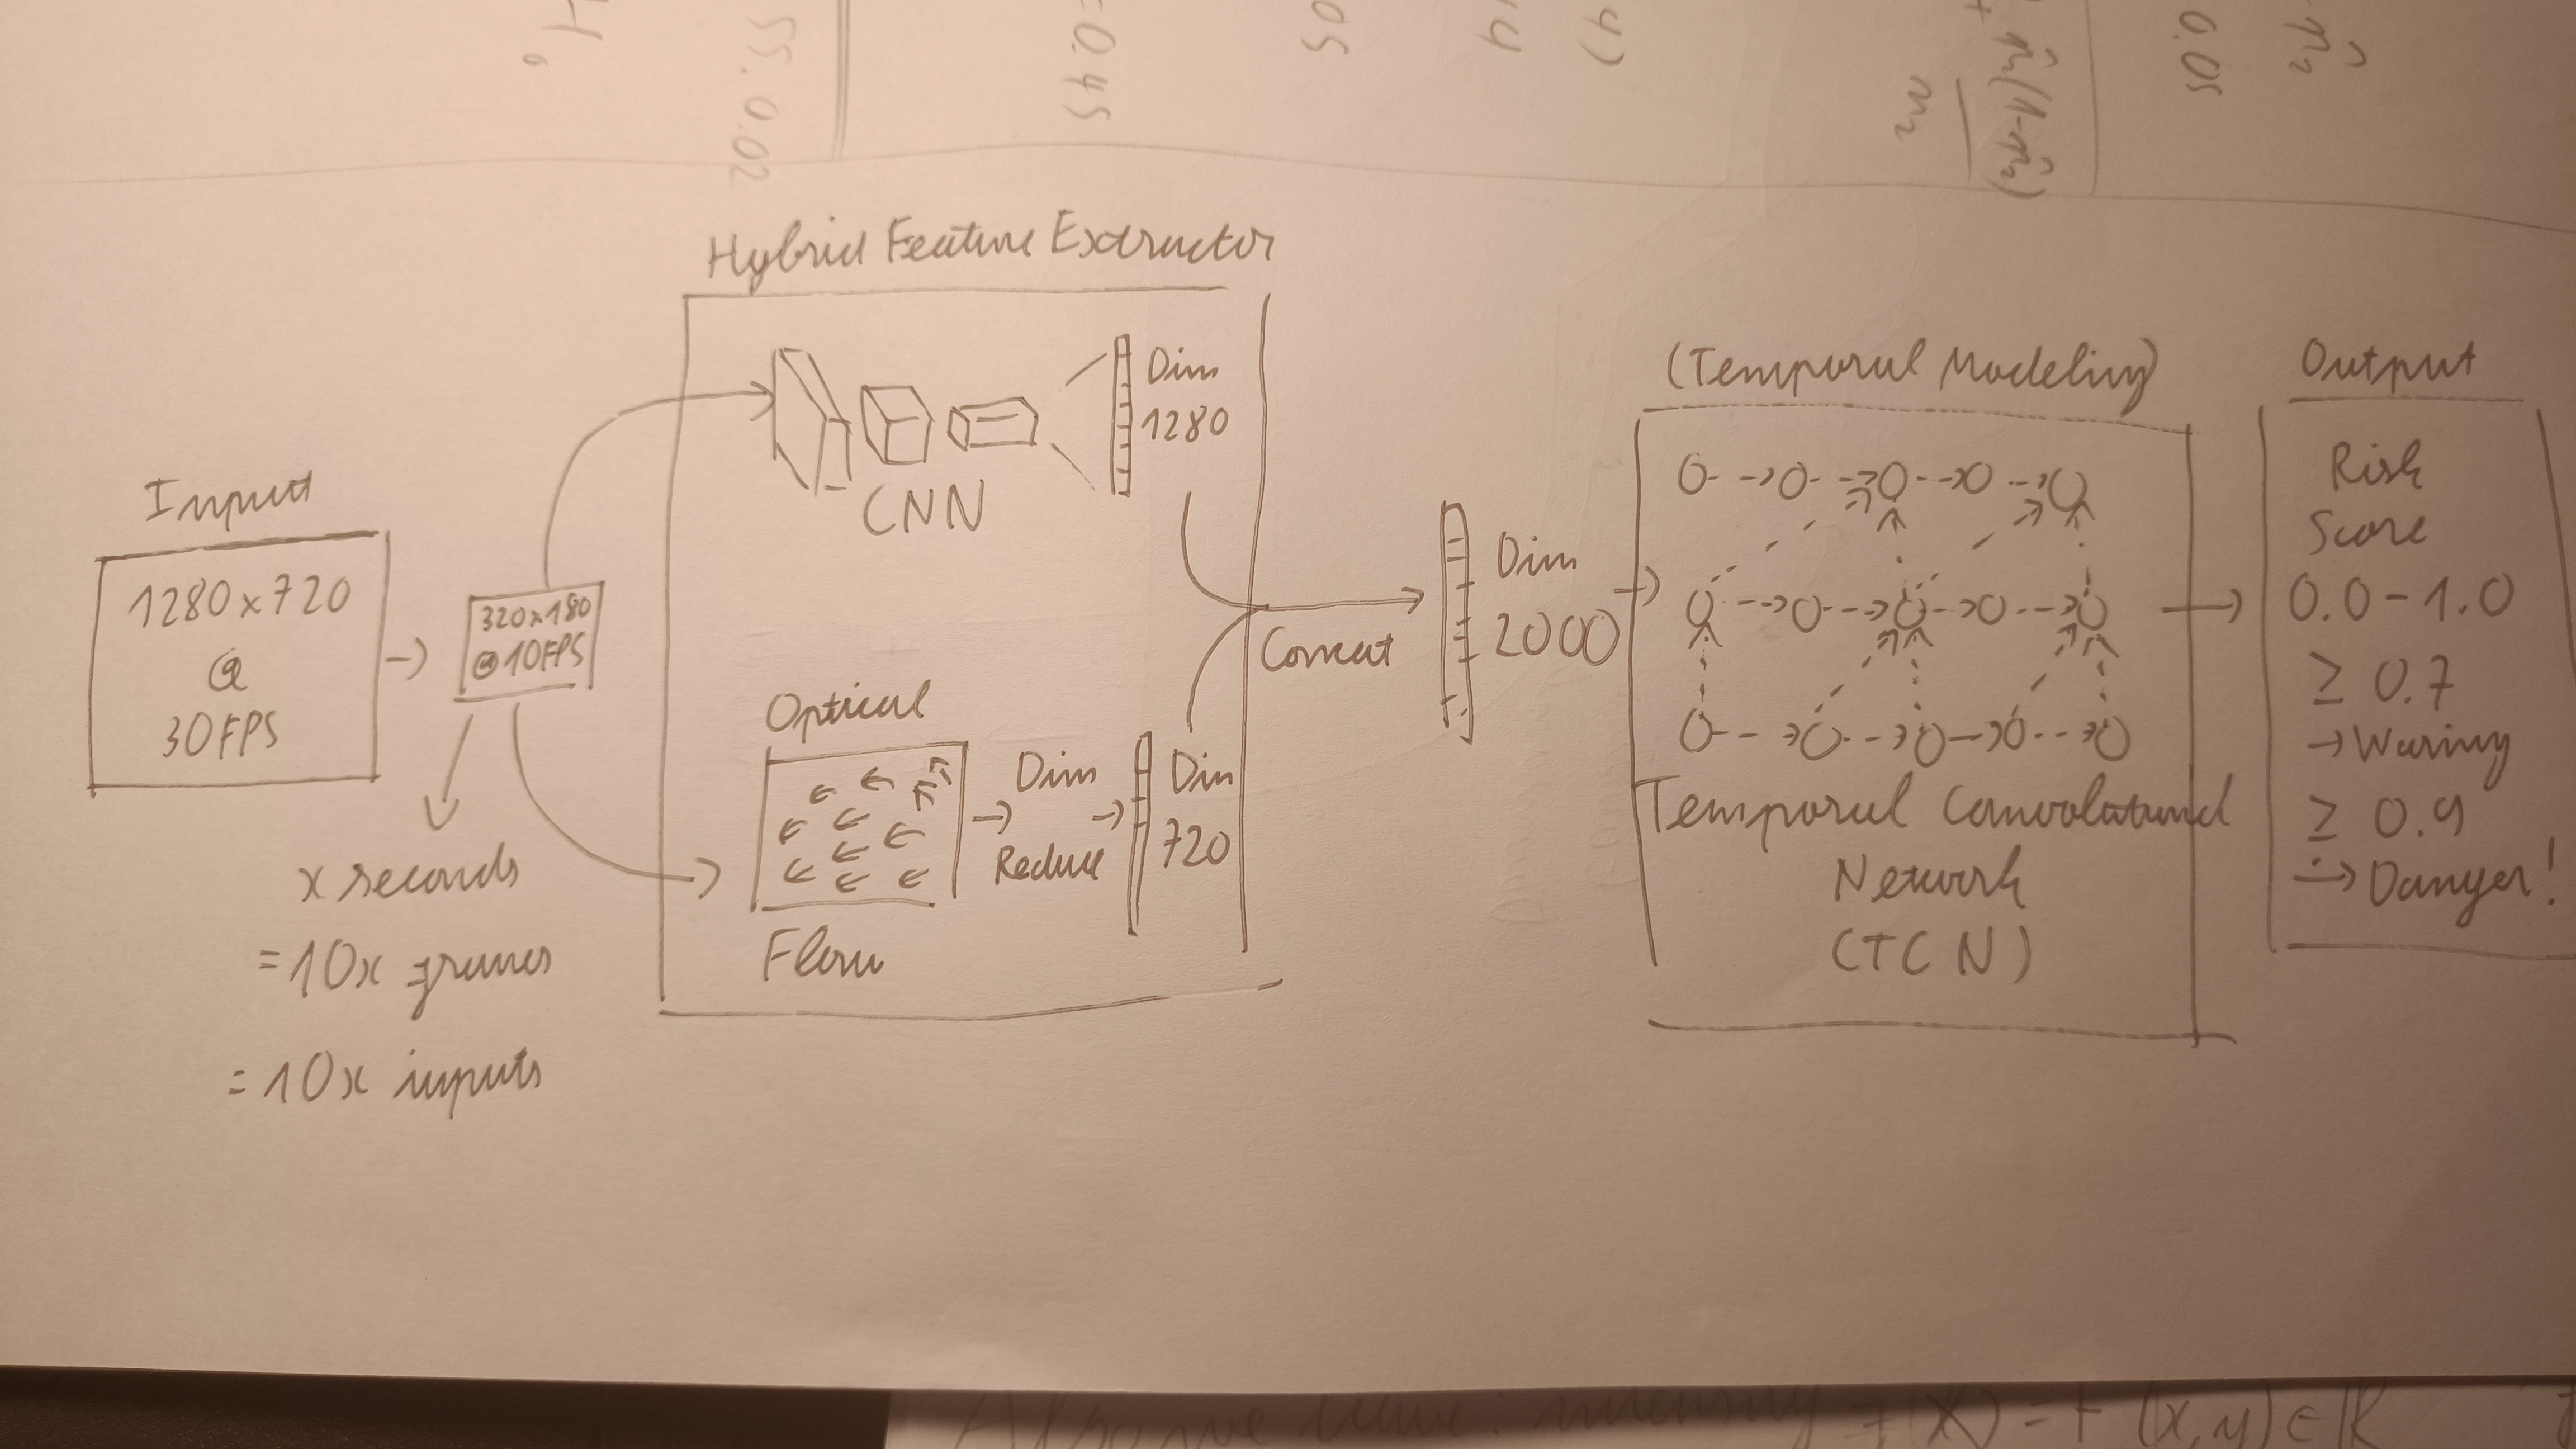 H₀
55. 0.02
=0.45
05
4
4)
+ n̂₂(1-n̂₂)
n₂
0.05
- n̂₂
Hybrid Feature Extractor
Input
1280x720
@
30FPS
->
320x180
@10FPS
x seconds
=10x frames
=10x inputs
CNN
Dim
1280
Optical
Flow
Dim
Reduce
Dim
720
Concat
Dim
2000
(Temporal Modeling)
Temporal Convolutional
Network
(TCN)
Output
Risk
Score
0.0-1.0
≥ 0.7
→Waring
≥ 0.9
→Danger!